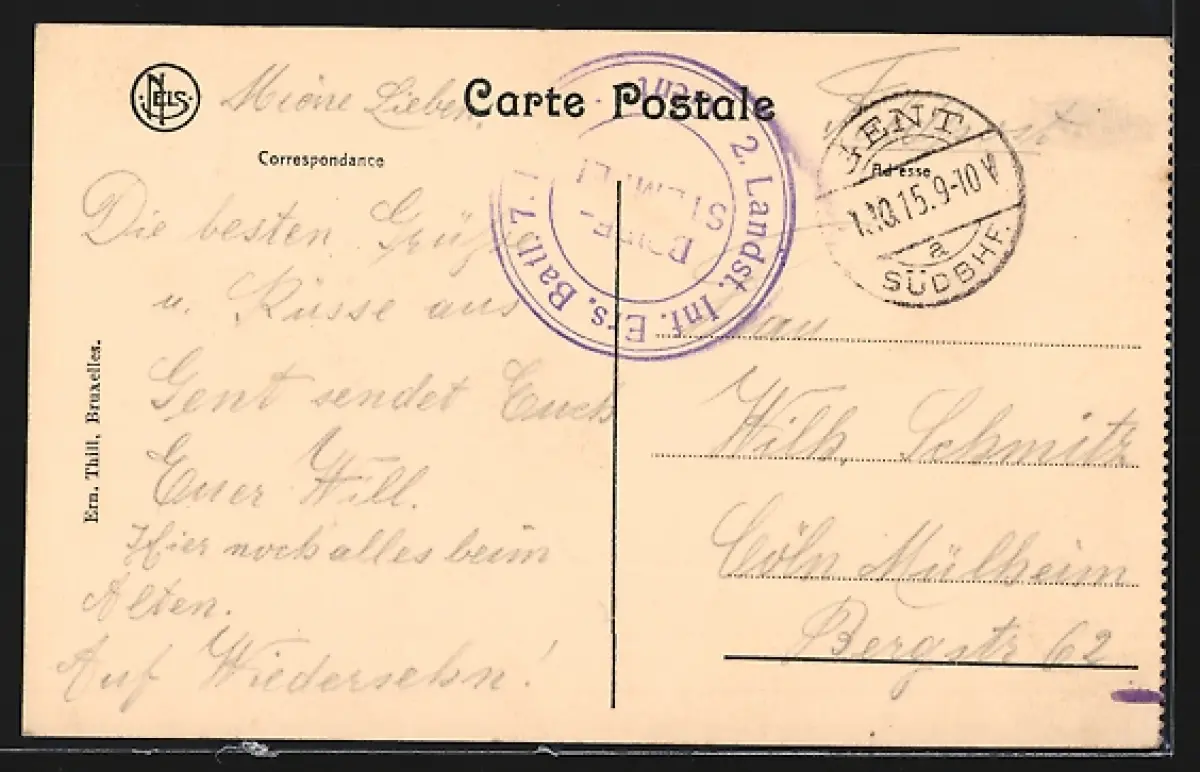 NELS
Carte Postale
Correspondance
Adresse
Meine Lieben,
Die besten Grüße
u. Küsse aus
Gent sendet Euch
Euer Will.
Hier noch alles beim
Alten.
Auf Wiedersehn!
Ern. Thill, Bruxelles.
2. Landst. Inf. Ers. Batl. 7.
BRIEF-
STEMPEL
GENT
1.10.15.9-10V
a
SÜDBHF.
Wilh. Schmitz
Cöln Mülheim
Bergstr 62